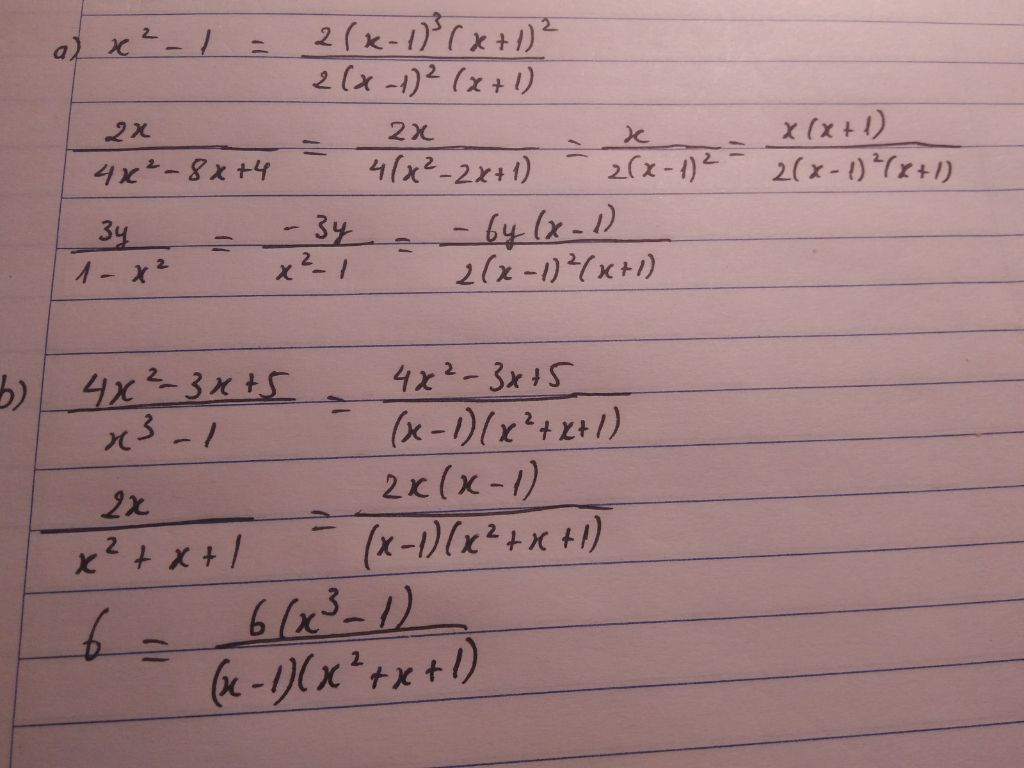 a) x² - 1 = 2(x-1)³(x+1)² / 2(x-1)²(x+1)
2x / 4x² - 8x + 4 = 2x / 4(x² - 2x + 1) = x / 2(x-1)² = x(x+1) / 2(x-1)²(x+1)
3y / 1 - x² = -3y / x² - 1 = -6y(x-1) / 2(x-1)²(x+1)
b) 4x² - 3x + 5 / x³ - 1 = 4x² - 3x + 5 / (x-1)(x² + x + 1)
2x / x² + x + 1 = 2x(x-1) / (x-1)(x² + x + 1)
6 = 6(x³ - 1) / (x-1)(x² + x + 1)